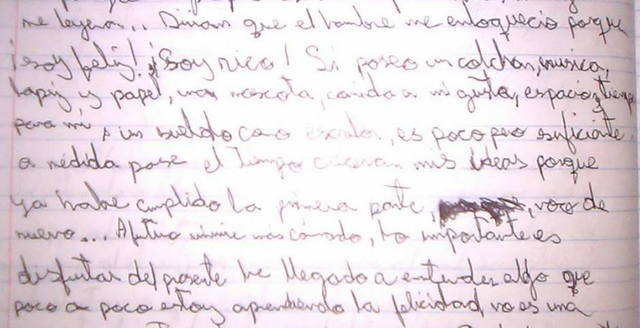 me leyeran... Dirian que el hombre me enloquecio porque
¡soy feliz! ¡Soy rico! Si poseo un colchon, musica,
lapiz y papel, una mascota, comida a mi gusto, espacio, tiempo
para mi, un sueldo como escritor, es poco pero suficiente
a medida pase el tiempo mis ideas porque
ya habre cumplido la primera parte, , voy de
nuevo... A futuro vivire más cómodo, lo importante es
disfrutar del presente he llegado a entender algo que
poco a poco estoy aprendiendo la felicidad no es una